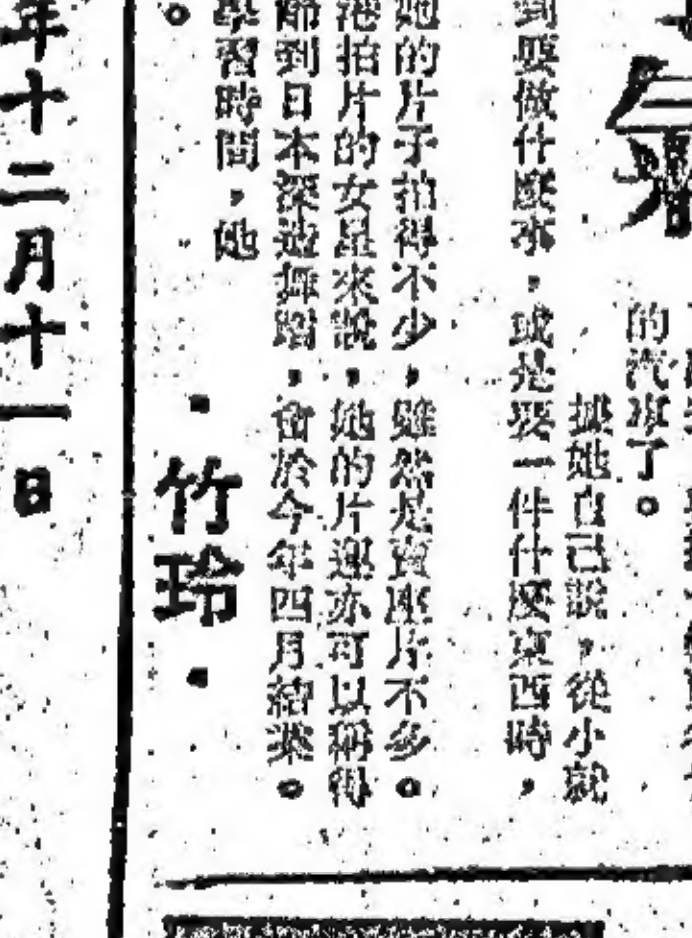 氣
的汽車了。
據她自己說，從小就
到要做什麼事，或是要一件什麼東西時，
她的片子拍得不少，雖然是賣座片不多。
港拍片的女星來說，她的片運亦可以稱得
節到日本深造舞蹈，會於今年四月結業。
學習時間，她
。
・竹玲・
年十二月十一日